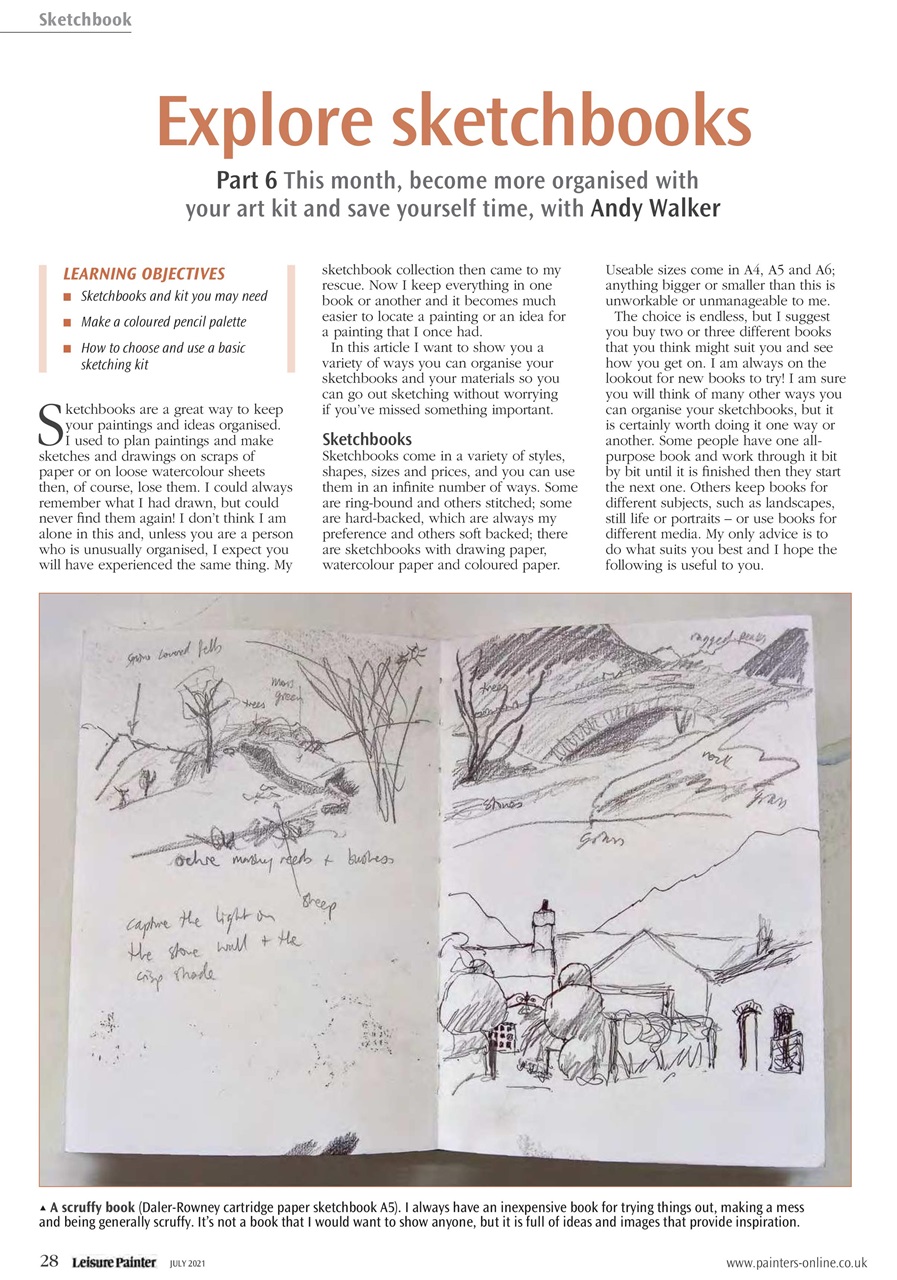 Sketchbook
Explore sketchbooks
Part 6 This month, become more organised with
your art kit and save yourself time, with Andy Walker
LEARNING OBJECTIVES
■ Sketchbooks and kit you may need
■ Make a coloured pencil palette
■ How to choose and use a basic
sketching kit
Sketchbooks are a great way to keep
your paintings and ideas organised.
I used to plan paintings and make
sketches and drawings on scraps of
paper or on loose watercolour sheets
then, of course, lose them. I could always
remember what I had drawn, but could
never find them again! I don't think I am
alone in this and, unless you are a person
who is unusually organised, I expect you
will have experienced the same thing. My
sketchbook collection then came to my
rescue. Now I keep everything in one
book or another and it becomes much
easier to locate a painting or an idea for
a painting that I once had.
In this article I want to show you a
variety of ways you can organise your
sketchbooks and your materials so you
can go out sketching without worrying
if you've missed something important.
Sketchbooks
Sketchbooks come in a variety of styles,
shapes, sizes and prices, and you can use
them in an infinite number of ways. Some
are ring-bound and others stitched; some
are hard-backed, which are always my
preference and others soft backed; there
are sketchbooks with drawing paper,
watercolour paper and coloured paper.
Useable sizes come in A4, A5 and A6;
anything bigger or smaller than this is
unworkable or unmanageable to me.
The choice is endless, but I suggest
you buy two or three different books
that you think might suit you and see
how you get on. I am always on the
lookout for new books to try! I am sure
you will think of many other ways you
can organise your sketchbooks, but it
is certainly worth doing it one way or
another. Some people have one all-
purpose book and work through it bit
by bit until it is finished then they start
the next one. Others keep books for
different subjects, such as landscapes,
still life or portraits – or use books for
different media. My only advice is to
do what suits you best and I hope the
following is useful to you.
snow covered fells
moss
green
trees
ochre marshy reeds + bushess
sheep
capture the light on
the stone wall + the
crisp shade
rugged peaks
trees
rock
grass
stones
Grass
▲ A scruffy book (Daler-Rowney cartridge paper sketchbook A5). I always have an inexpensive book for trying things out, making a mess
and being generally scruffy. It's not a book that I would want to show anyone, but it is full of ideas and images that provide inspiration.
28 Leisure Painter JULY 2021
www.painters-online.co.uk